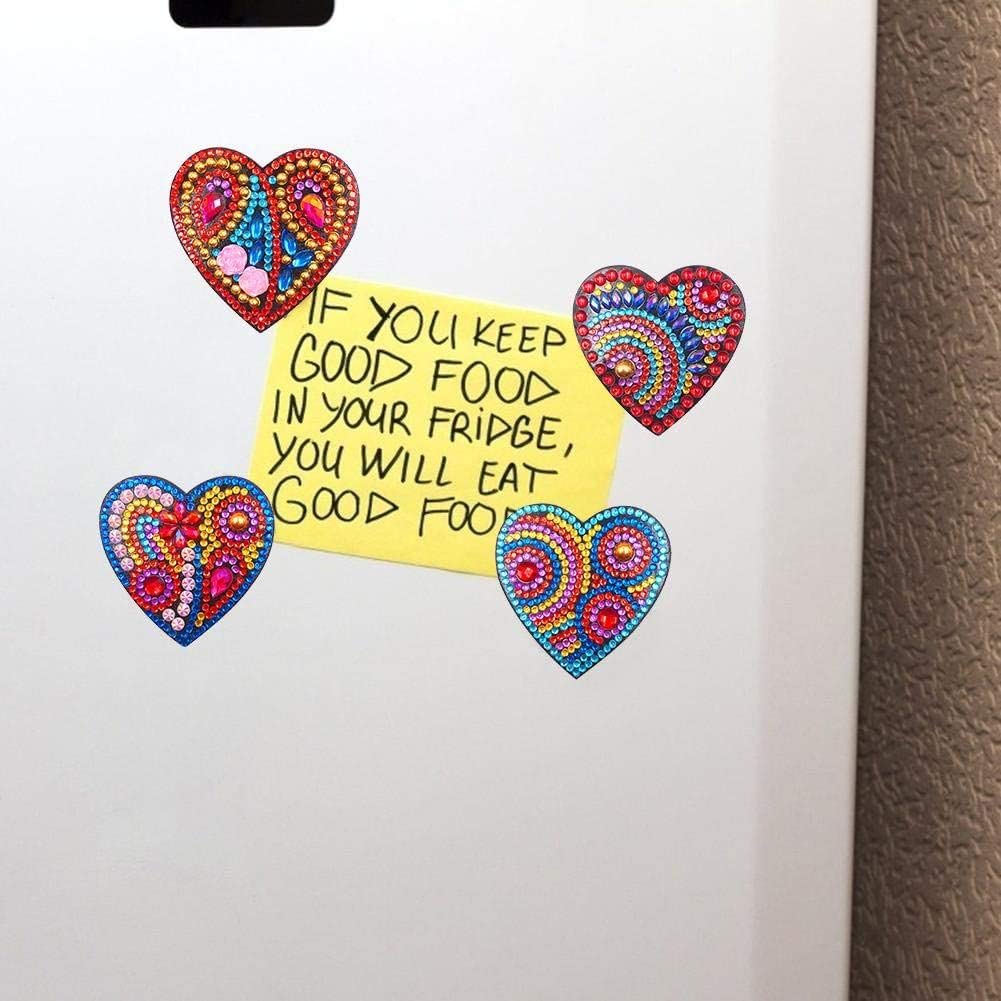 IF YOU KEEP
GOOD FOOD
IN YOUR FRiDGE,
YOU WILL EAT
GOOD FOOD